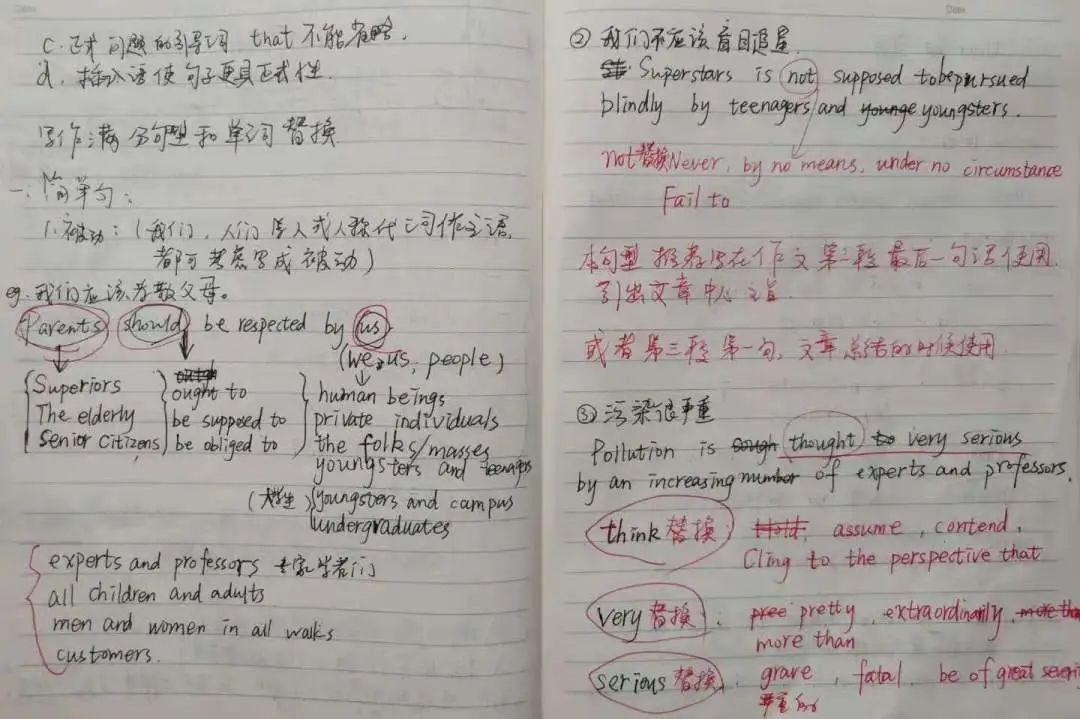 c. 正式问题的引导词 that 不能省略.
d. 插入语使句子更具正式性.
写作满分句型和单词替换
一. 简单句:
1. 被动: (我们, 人们 等人或人称代词作主语
都可考虑写成被动)
eg. 我们应该尊敬父母。
Parents should be respected by us
(we, us, people)
Superiors ought to human beings
The elderly be supposed to private individuals
Senior Citizens be obliged to the folks/masses
youngsters and teenagers
(大学生) youngsters and campus
undergraduates
experts and professors 专家学者们
all children and adults
men and women in all walks
customers.
② 我们不应该盲目追星.
Superstars is not supposed to be pursued
blindly by teenagers and younge youngsters.
not替换 Never, by no means, under no circumstance
Fail to
本句型推荐写在作文第二段最后一句话使用.
引出文章中心主旨
或者第三段第一句, 文章总结的时候使用
③ 污染很严重
Pollution is thought to very serious
by an increasing number of experts and professors.
think 替换 Hold, assume, contend.
Cling to the perspective that
very 替换: pree pretty, extraordinarily, more tha
more than
serious 替换. grave, fatal. be of great severi
严重的